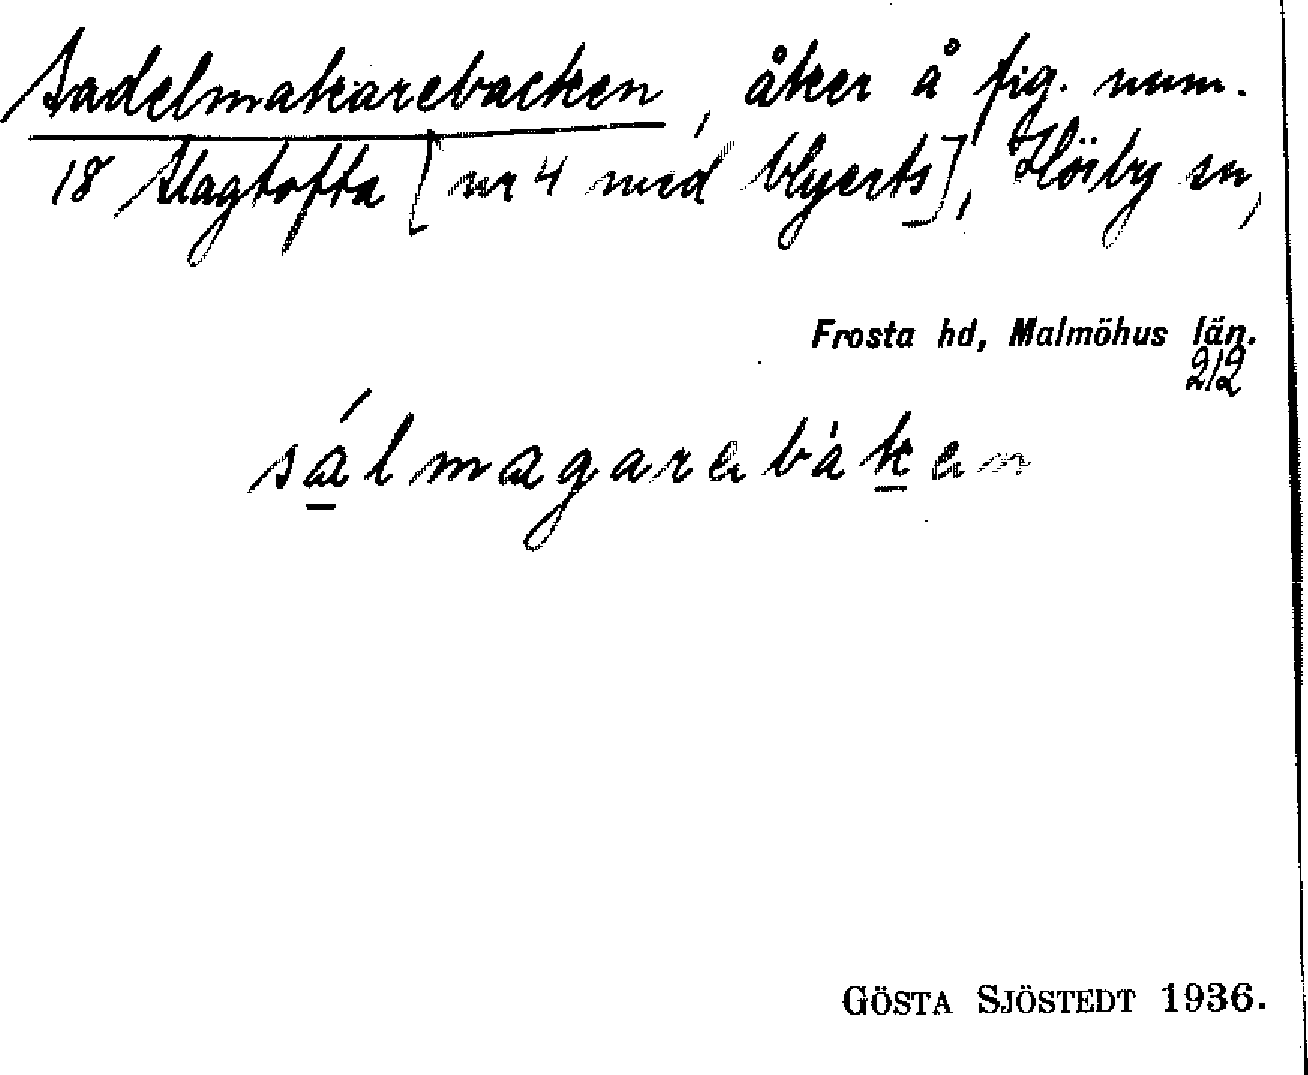 Sadelmakarebacken, åker å fig. num.
18 Slagtofta [nr 4 med blyerts], Hörby sn,
Frosta hd, Malmöhus län.
212
sálmagarebàken
GÖSTA SJÖSTEDT 1936.